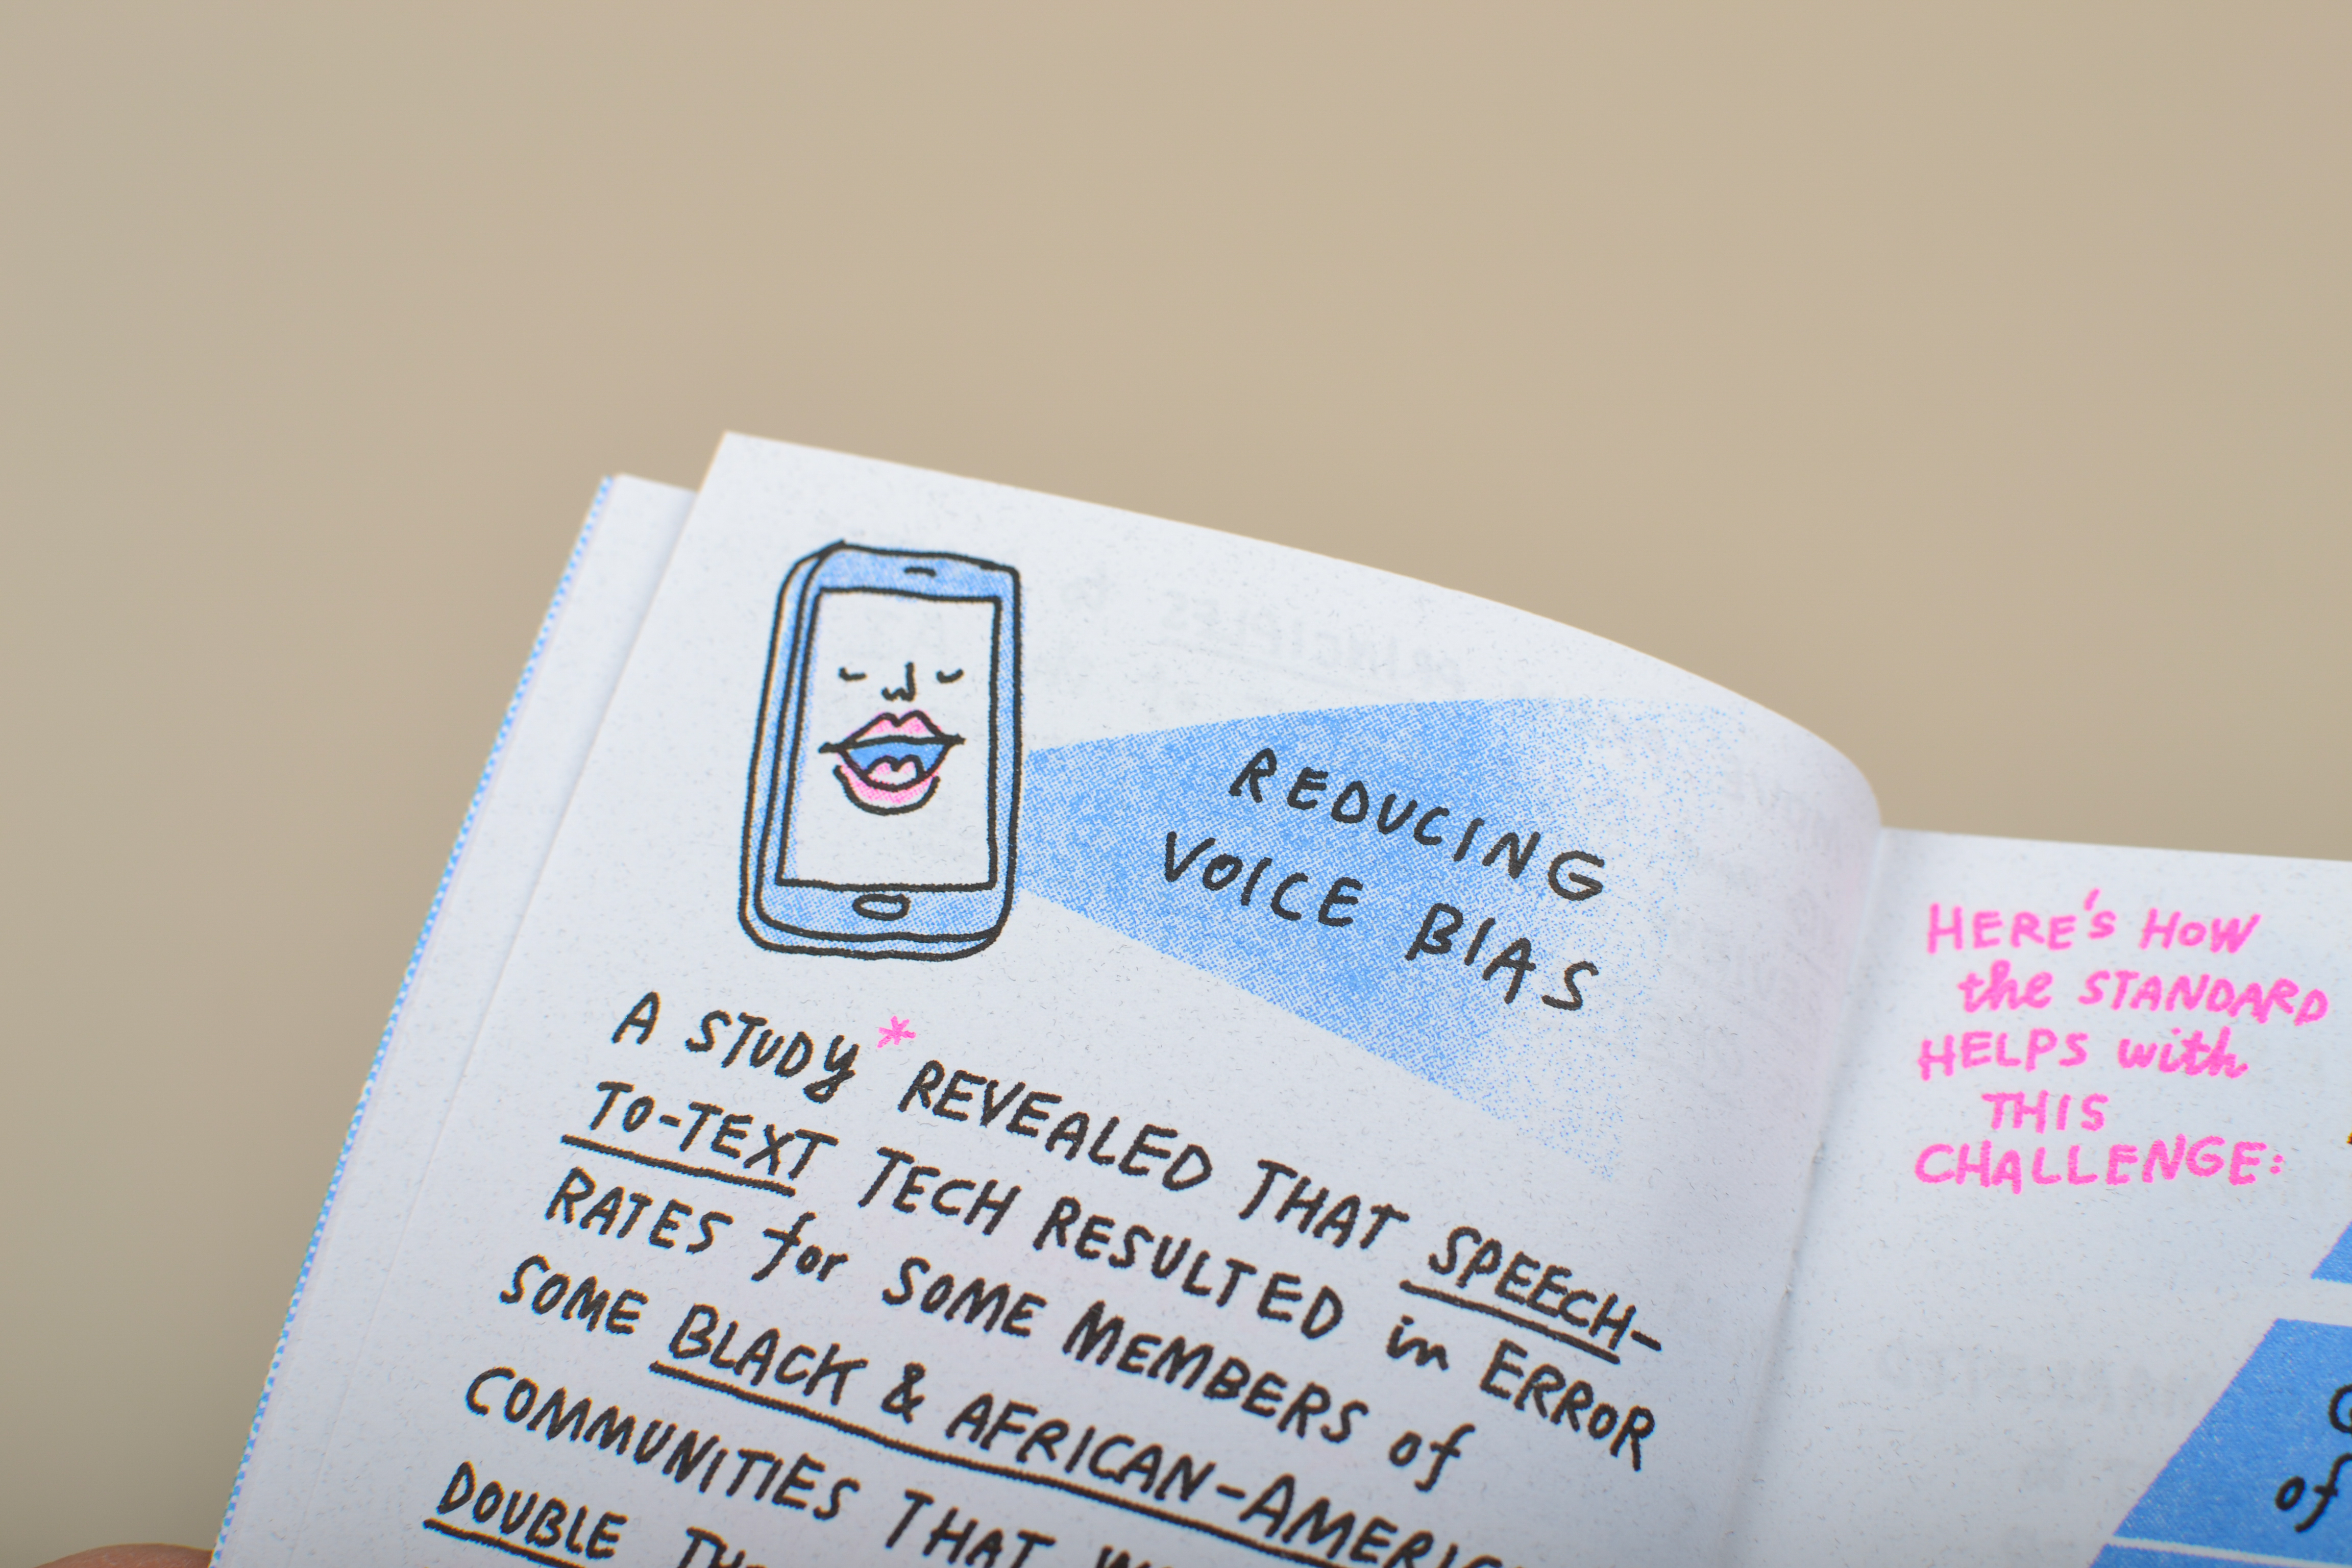 REDUCING
VOICE BIAS
A STUDY* REVEALED THAT SPEECH-
TO-TEXT TECH RESULTED in ERROR
RATES for SOME MEMBERS of
SOME BLACK & AFRICAN-AMERIC
COMMUNITIES THAT
DOUBLE
HERE'S HOW
the STANDARD
HELPS with
THIS
CHALLENGE:
of